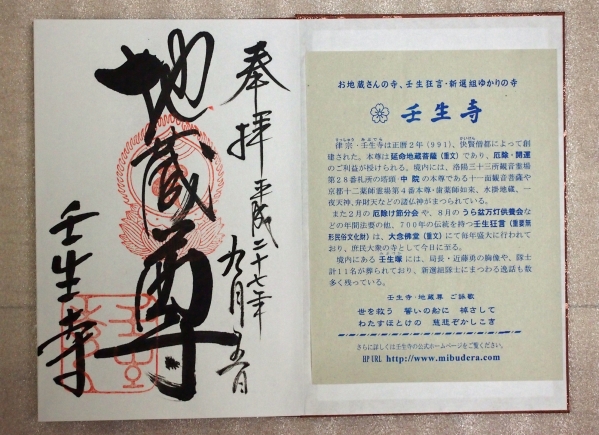 奉拝
平成二十七年
九月五日
地蔵尊
壬生寺
お地蔵さんの寺、壬生狂言・新選組ゆかりの寺
壬生寺
律宗・壬生寺は正暦2年(991)、快賢僧都によって創
建された。本尊は延命地蔵菩薩(重文)であり、厄除・開運
のご利益が授けられる。境内には、洛陽三十三所観音霊場
第28番札所の塔頭 中院 の本尊である十一面観音菩薩や
京都十二薬師霊場第4番本尊・歯薬師如来、水掛地蔵、一
夜天神、弁財天などの諸仏神がまつられている。
また2月の厄除け節分会や、8月のうら盆万灯供養会な
どの年間法要の他、700年の伝統を持つ壬生狂言(重要無
形民俗文化財)は、大念佛堂(重文)にて毎年盛大に行われて
おり、庶民大衆の寺として今日に至る。
境内にある壬生塚には、局長・近藤勇の胸像や、隊士
計11名が葬られており、新選組隊士にまつわる逸話も数
多く残っている。
壬生寺・地蔵尊 ご詠歌
世を救う 誓いの船に 棹さして
わたすほとけの 慈悲ぞかしこき
さらに詳しくは壬生寺の公式ホームページをご覧ください。
HP URL http://www.mibudera.com